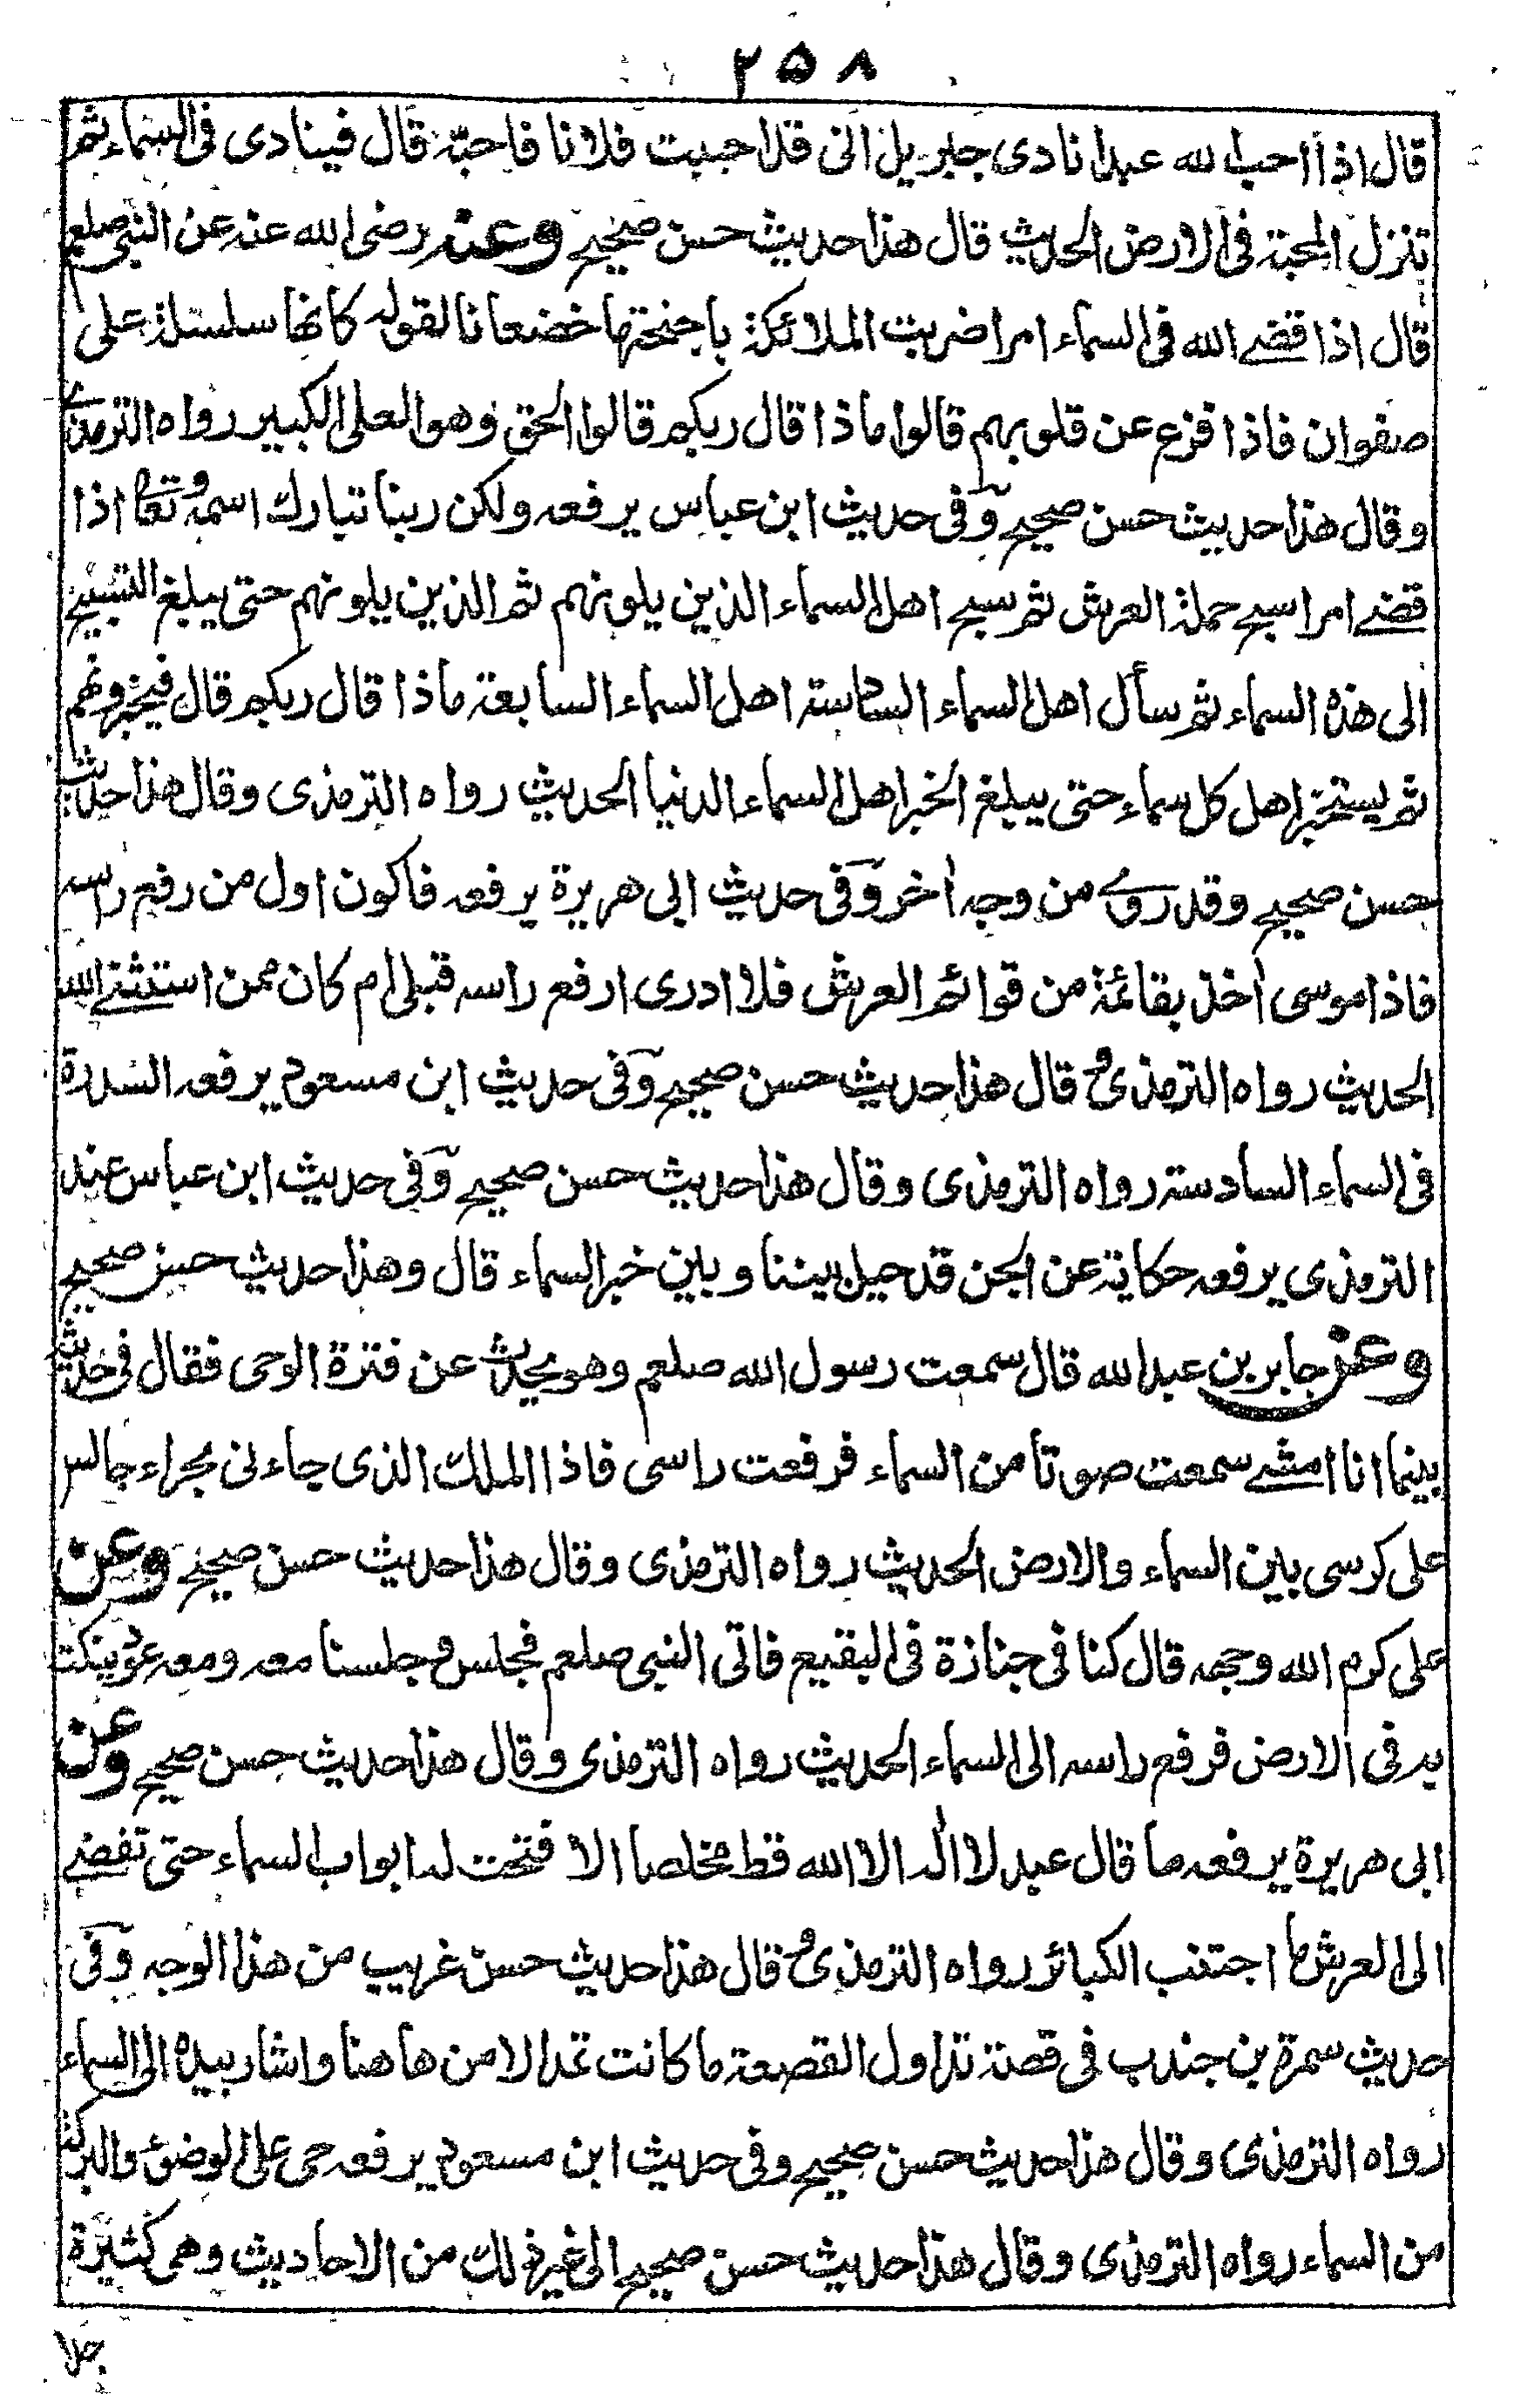 ۲۵۸
قال اذا احب الله عبدا نادى جبريل انى قد احببت فلانا فاحبه قال فينادى فى السماء ثم
تنزل المحبة فى الارض الحديث قال هذا حديث حسن صحيح وعنه رضى الله عنه عن النبى صلعم
قال اذا قضے الله فى السماء امرا ضربت الملائكة باجنحتها خضعانا لقوله كانها سلسلة على
صفوان فاذا فزع عن قلوبهم قالوا ما ذا قال ربكم قالوا الحق وهو العلى الكبير رواه الترمذے
وقال هذا حديث حسن صحيح وفى حديث ابن عباس يرفعه ولكن ربنا تبارك اسمه وتعا اذا
قضے امرا سبح حملة العرش ثم سبح اهل السماء الذين يلونهم ثم الذين يلونهم حتى يبلغ التسبيح
الى هذه السماء ثم سأل اهل السماء السادسة اهل السماء السابعة ما ذا قال ربكم قال فيخبرونهم
ثم يستخبر اهل كل سماء حتى يبلغ الخبر اهل السماء الدنيا الحديث رواه الترمذى وقال هذا حديث
حسن صحيح وقد روے من وجه اخر وفى حديث ابى هريرة يرفعه فاكون اول من رفع راسه
فاذا موسى اخذ بقائمة من قوائم العرش فلا ادرى ارفع راسه قبلى ام كان ممن استثنے الله
الحديث رواه الترمذى وقال هذا حديث حسن صحيح وفى حديث ابن مسعود يرفعه السدرة
فى السماء السادسة رواه الترمذى وقال هذا حديث حسن صحيح وفى حديث ابن عباس عند
الترمذى يرفعه حكاية عن الجن قد حيل بيننا وبين خبر السماء قال وهذا حديث حسن صحيح
وعن جابر بن عبد الله قال سمعت رسول الله صلعم وهو يحدث عن فترة الوحى فقال فى حديثه
بينما انا امشے سمعت صوتا من السماء فرفعت راسى فاذا الملك الذى جاءنى بحراء جالس
على كرسى بين السماء والارض الحديث رواه الترمذى وقال هذا حديث حسن صحيح وعن
على كرم الله وجهه قال كنا فى جنازة فى البقيع فاتى النبى صلعم فجلس وجلسنا معه ومعه عود ينكت
به فى الارض فرفع راسه الى السماء الحديث رواه الترمذى وقال هذا حديث حسن صحيح وعن
ابى هريرة يرفعه ما قال عبد لا اله الا الله قط مخلصا الا فتحت له ابواب السماء حتى تفضے
الى العرش ما اجتنب الكبائر رواه الترمذى وقال هذا حديث حسن غريب من هذا الوجه وفى
حديث سمرة بن جندب فى قصة تداول القصعة ما كانت تمد الا من هاهنا واشار بيده الى السماء
رواه الترمذى وقال هذا حديث حسن صحيح وفى حديث ابن مسعود يرفعه حى على الوضوئ والبركة
من السماء رواه الترمذى وقال هذا حديث حسن صحيح الى غير ذلك من الاحاديث وهى كثيرة
جدا